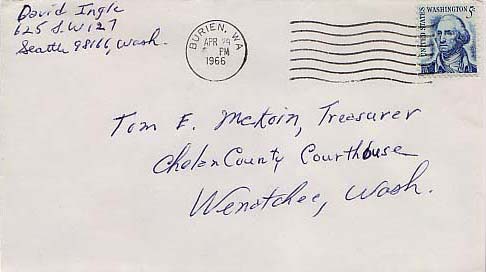 David Ingle
625 S.W 127
Seattle 98166, Wash.
BURIEN, WA
APR 29
PM
1966
UNITED STATES
WASHINGTON 5c
Tom E. McKoin, Treasurer
Chelan County Courthouse
Wenatchee, Wash.